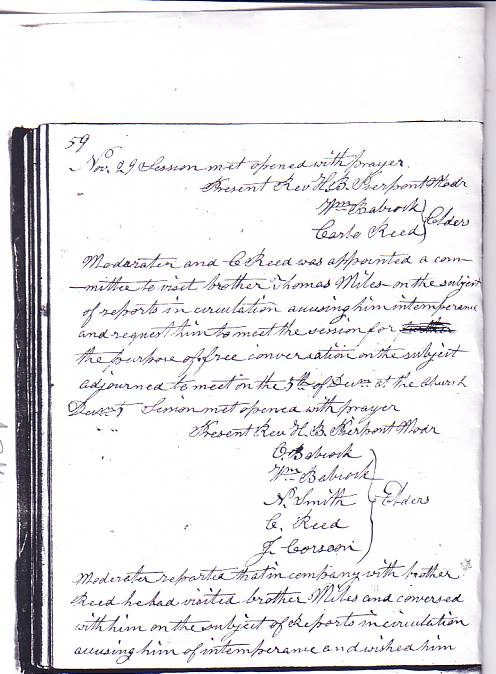 59
Nov. 29 Session met opened with prayer.
Present Rev H. B. Pierpont Modr
Wm Babcock
Carlo Reed } Elders
Moderater and C Reed was appointed a com-
-mittee to visit brother Thomas Miles on the subject
of reports in circulation accusing him intemperance
and request him to meet the session for
the purpose of free conversation on the subject
adjourned to meet on the 5th of Decm at the Church
Decm 5 Session met opened with prayer
Present Rev. H. B. Pierpont Modr
O. Babcock
Wm Babcock
N. Smith } Elders
C. Reed
J. Corson
Moderater reported that in company with brother
Reed he had visited brother Miles and conversed
with him on the subject of Reports in circulation
accusing him of intemperance and wished him